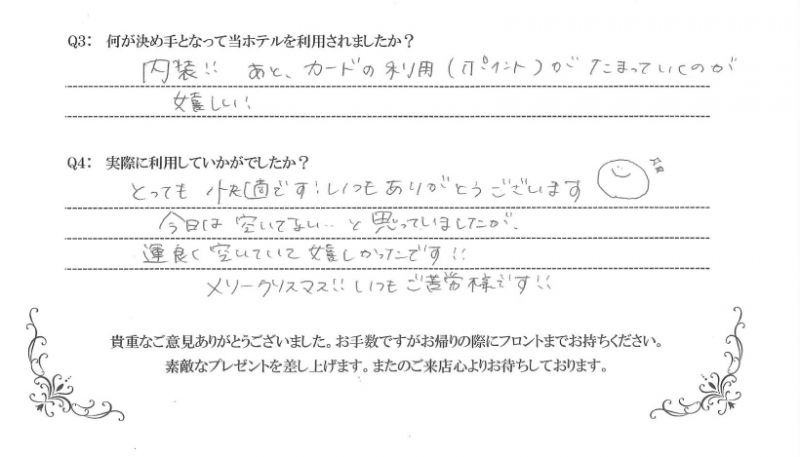 Q3: 何が決め手となって当ホテルを利用されましたか？
内装!! あと、カードの利用（ポイント）がたまっていくのが
嬉しい!
Q4: 実際に利用していかがでしたか？
とっても快適です! いつもありがとうございます
今日は空いてない…と思っていましたが、
運良く空いていて嬉しかったです!!
メリークリスマス!! いつもご苦労様です!!
貴重なご意見ありがとうございました。お手数ですがお帰りの際にフロントまでお持ちください。
素敵なプレゼントを差し上げます。またのご来店心よりお待ちしております。